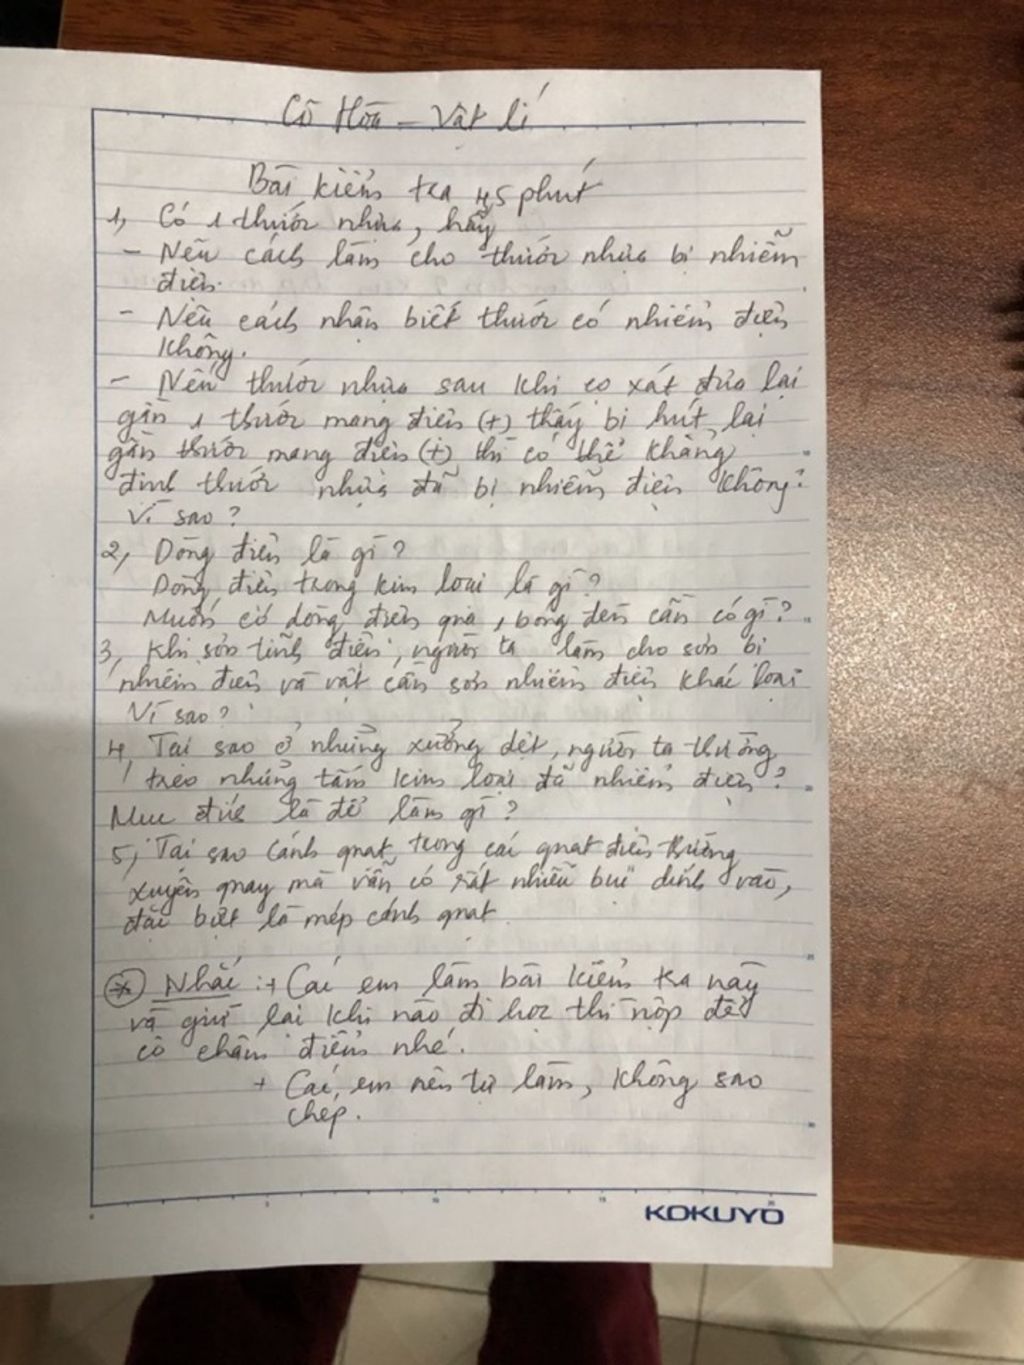 Cô Hòa - Vật lí
Bài kiểm tra 45 phút
1, Có 1 thước nhựa, hãy
- Nêu cách làm cho thước nhựa bị nhiễm
điện.
- Nêu cách nhận biết thước có nhiễm điện
không.
- Nếu thước nhựa sau khi cọ xát đưa lại
gần 1 thước mang điện (+) thấy bị hút lại
gần thước mang điện (+) thì có thể khẳng
định thước nhựa đã bị nhiễm điện không?
Vì sao?
2, Dòng điện là gì?
Dòng điện trong kim loại là gì?
Muốn có dòng điện qua 1 bóng đèn cần có gì?
3, Khi sơn tĩnh điện, người ta làm cho sơn bị
nhiễm điện và vật cần sơn nhiễm điện khác loại
Vì sao?
4, Tại sao ở những xưởng dệt, người ta thường
treo những tấm kim loại đã nhiễm điện?
Mục đích là để làm gì?
5, Tại sao cánh quạt trong cái quạt điện thường
xuyên quay mà vẫn có rất nhiều bụi dính vào,
đặc biệt là mép cánh quạt
* Nhắc: + Các em làm bài kiểm tra này
và giữ lại khi nào đi học thì nộp để
cô chấm điểm nhé.
+ Các em nên tự làm, không sao
chép.
KOKUYO